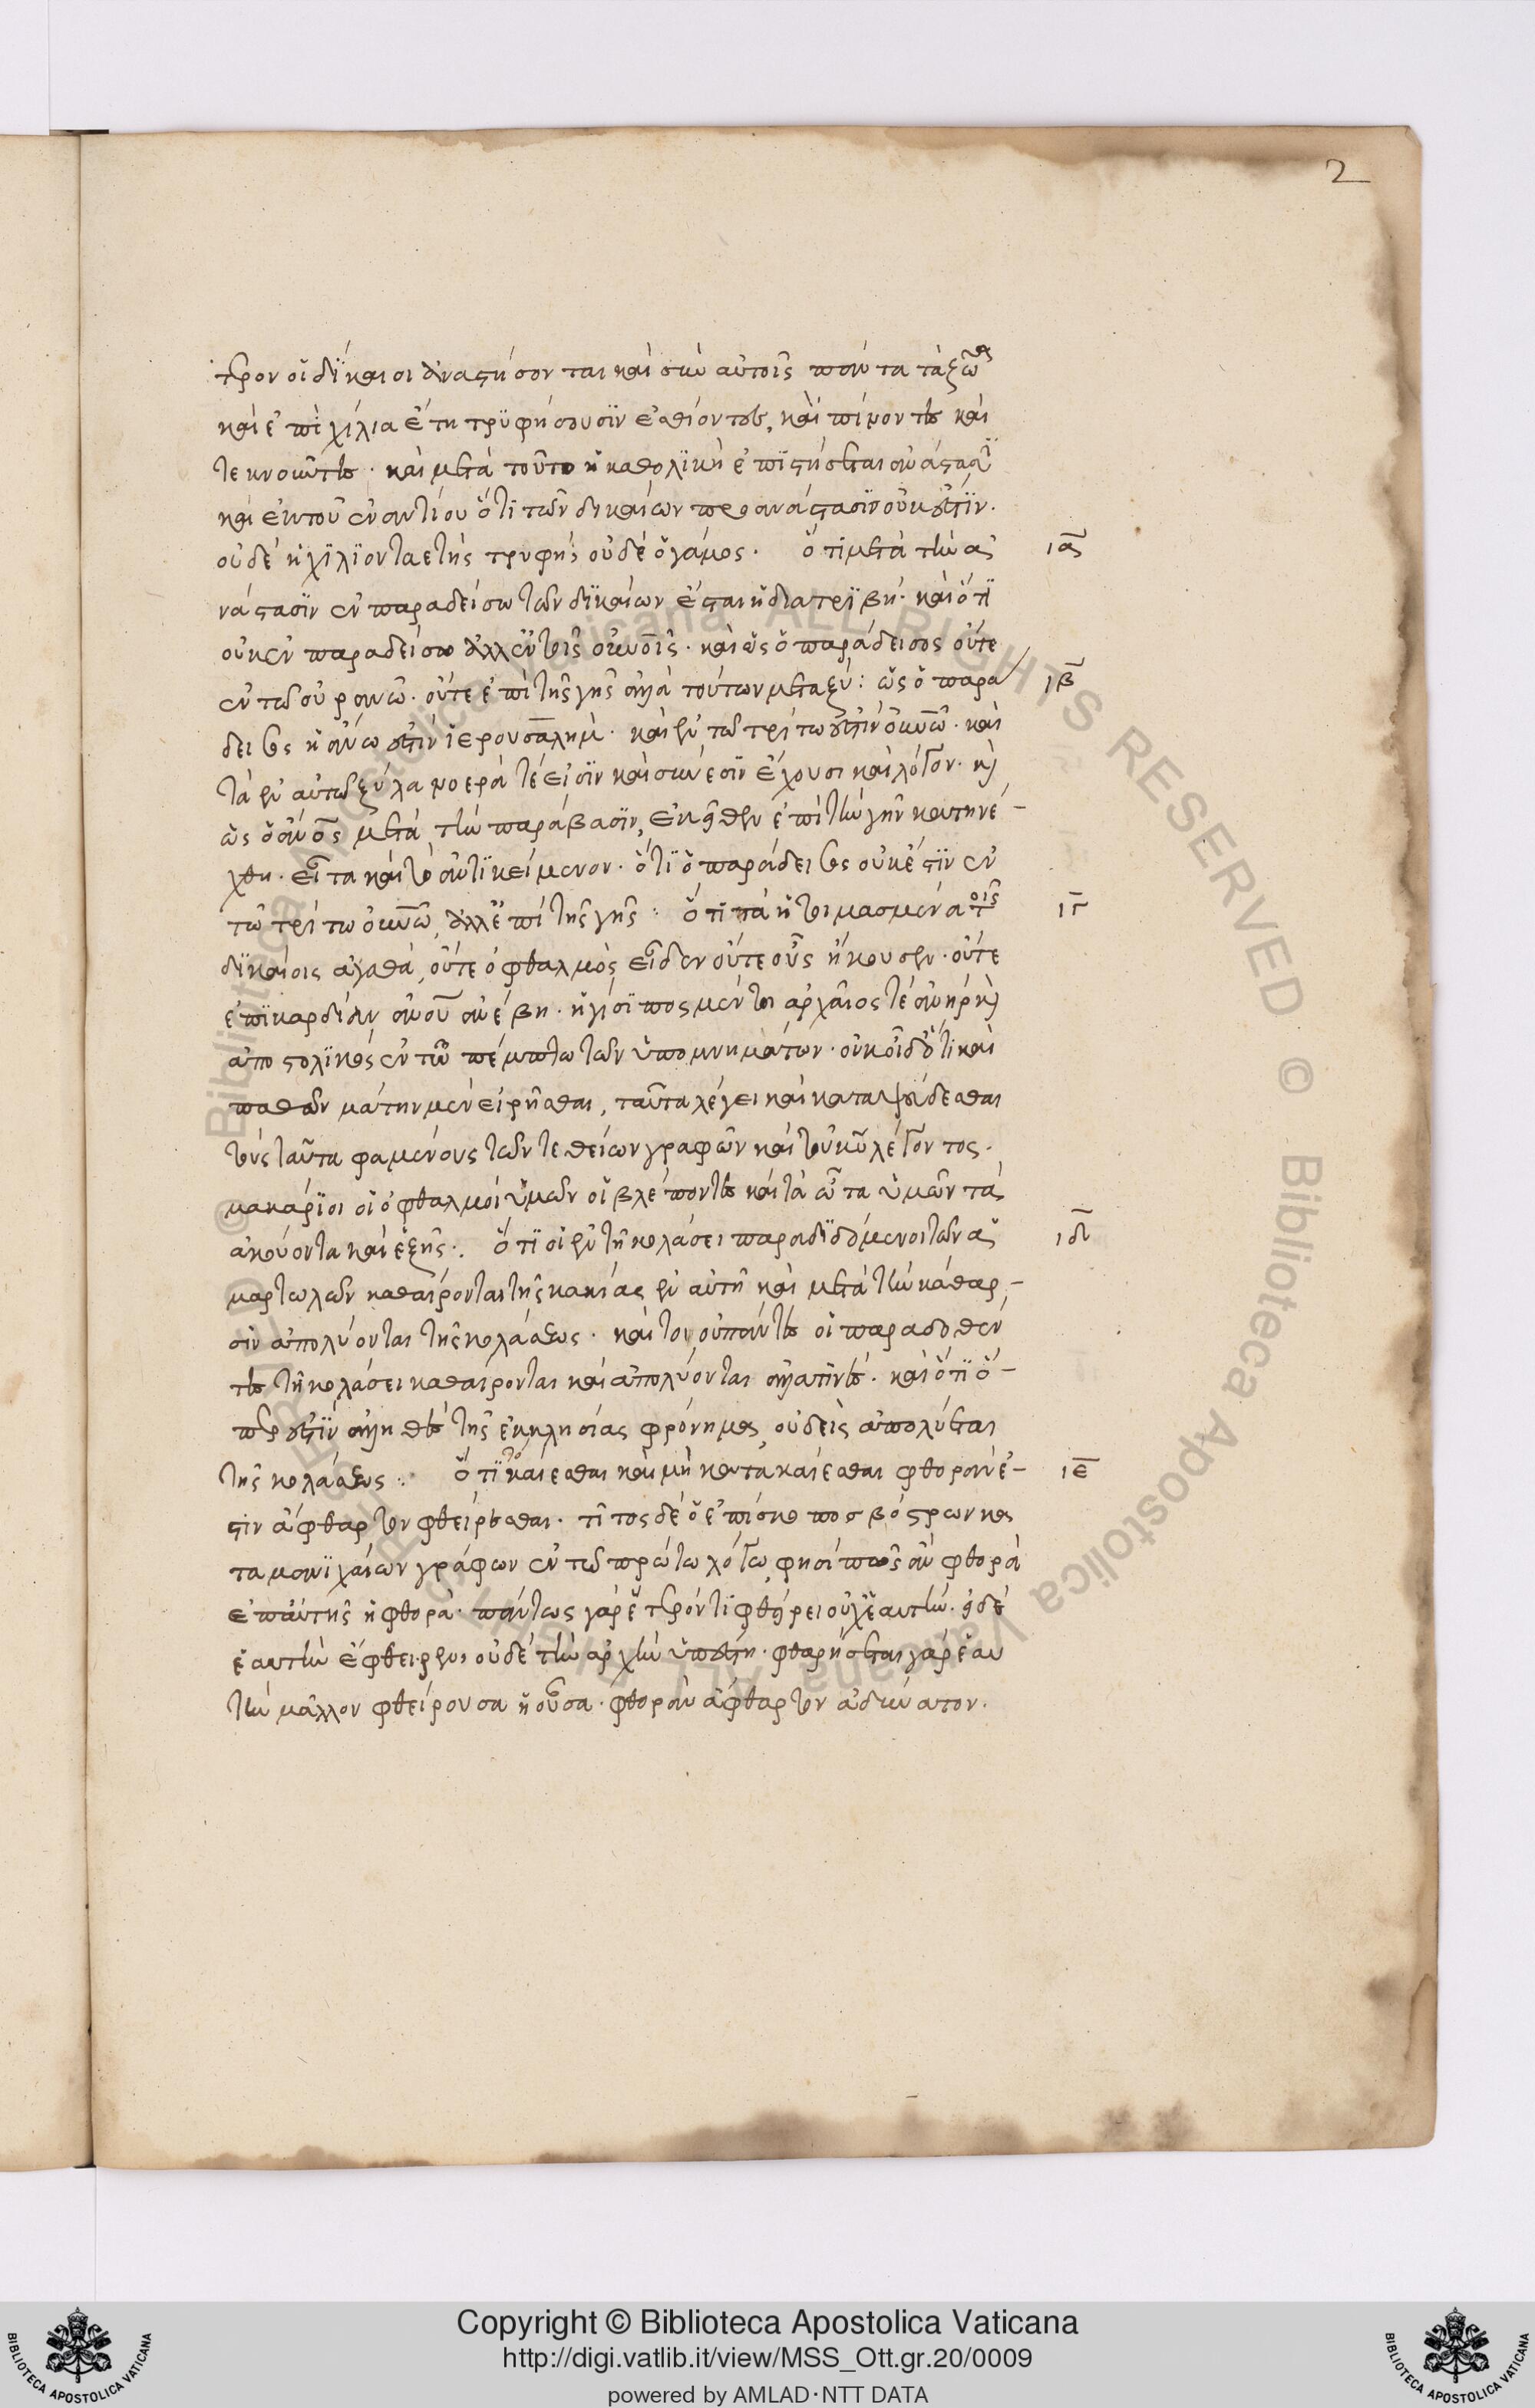 2
τερον οἱ δίκαιοι ἀναστήσονται καὶ σὺν αὐτοῖς πάντα τὰ ζῶα
καὶ ἐπὶ χίλια ἔτη τρυφήσουσιν ἐσθίοντες, καὶ πίνοντες καὶ
τεκνοῦντες. καὶ μετὰ τοῦτο ἡ καθολικὴ ἐπιστήσεται ἀνάστασις
καὶ ἐκ τοῦ ἐναντίου ὅτι τῶν δικαίων προανάστασιν οὐκ ἔστιν.
οὐδὲ ἡ χιλιονταετὴς τρυφὴ, οὐδὲ ὁ γάμος. ὅτι μετὰ τὴν ἀ ια
νάστασιν ἐν παραδείσω τῶν δικαίων ἔσται ἡ διατριβή. καὶ ὅτι
οὐκ ἐν παραδείσω ἀλλ' ἐν τοῖς οὐνοῖς. καὶ ὡς ὁ παράδεισος οὔτε
ἐν τῶ οὐρανῶ. οὔτε ἐπὶ τῆς γῆς ἀλλὰ τούτων μεταξύ: ὡς ὁ παρα ιβ
δεισος ἡ ἄνω ἐστὶν ἱερουσαλήμ. καὶ ἐν τῶ τρίτω ἐστὶν οὐνῶ. καὶ
τὰ ἐν αὐτῶ ξύλα νοερά τέ εἰσιν καὶ σύνεσιν ἔχουσι καὶ λόγον. κὶ
ὡς ὁ ἄνος μετὰ τὴν παράβασιν, ἐκεῖθεν ἐπὶ τὴν γῆν κατηνέ-
χθη. εἶτα καὶ τὸ ἀντικείμενον. ὅτι ὁ παράδεισος οὐκ ἔστιν ἐν
τῶ τρίτω οὐνῶ, ἀλλ' ἐπὶ τῆς γῆς: ὅτι τὰ ἡτοιμασμένα τοῖς ιγ
δικαίοις ἀγαθά, οὔτε ὀφθαλμὸς εἶδεν οὔτε οὖς ἤκουσεν. οὔτε
ἐπὶ καρδίαν ἀνου ἀνέβη. ἡγίσιπος μέντοι ἀρχαῖός τε ἀνὴρ κὶ
ἀποστολικὸς ἐν τῶ πέμπτω τῶν ὑπομνημάτων. οὐκ οἶδ' ὅτι καὶ
παθὼν μάτην μὲν εἰρῆσθαι, ταῦτα λέγει καὶ καταψεύδεσθαι
τοὺς ταῦτα φαμένους τῶν τε θείων γραφῶν καὶ τοῦ κυ λέγοντος.
μακάριοι οἱ ὀφθαλμοὶ ὑμῶν οἱ βλέποντες καὶ τὰ ὦτα ὑμῶν τὰ
ἀκούοντα καὶ ἑξῆς: ὅτι οἱ ἐν τῆ κολάσει παραδιδόμενοι τῶν ἁ ιδ
μαρτωλῶν καθαίρονται τῆς κακίας ἐν αὐτῆ καὶ μετὰ τὴν κάθαρ-
σιν ἀπολύονται τῆς κολάσεως. καίτοι οὐ πάντες οἱ παραδοθέν
τες τῆ κολάσει καθαίρονται καὶ ἀπολύονται ἀλλὰ τινές. καὶ ὅτι ὅ-
περ ἐστὶν ἀληθὲς τῆς ἐκκλησίας φρόνημα, οὐδεὶς ἀπολύεται
τῆς κολάσεως: ὅτι τὸ καίεσθαι καὶ μὴ κατακαίεσθαι φθορὰν ἐ- ιε
στιν ἄφθαρτον φθείρεσθαι. τίτος δὲ ὁ ἐπίσκοπος βόστρων κα
τὰ μανιχαίων γράφων ἐν τῶ πρώτω λόγω, φησί πῶς ἂν φθορὰ
ἐπ' αὐτῆς ἡ φθορά. πάντως γὰρ ἕτερόν τι φθείρει οὐχ ἑαυτήν. εἰ δὲ
ἑαυτὴν ἔφθειρεν, οὐδὲ τὴν ἀρχὴν ὑπέστη. φθαρήσεται γὰρ ἑαυ
τὴν μᾶλλον φθείρουσα ἢ οὖσα. φθορὰν ἄφθαρτον ἀδύνατον.
Copyright © Biblioteca Apostolica Vaticana
http://digi.vatlib.it/view/MSS_Ott.gr.20/0009
powered by AMLAD·NTT DATA